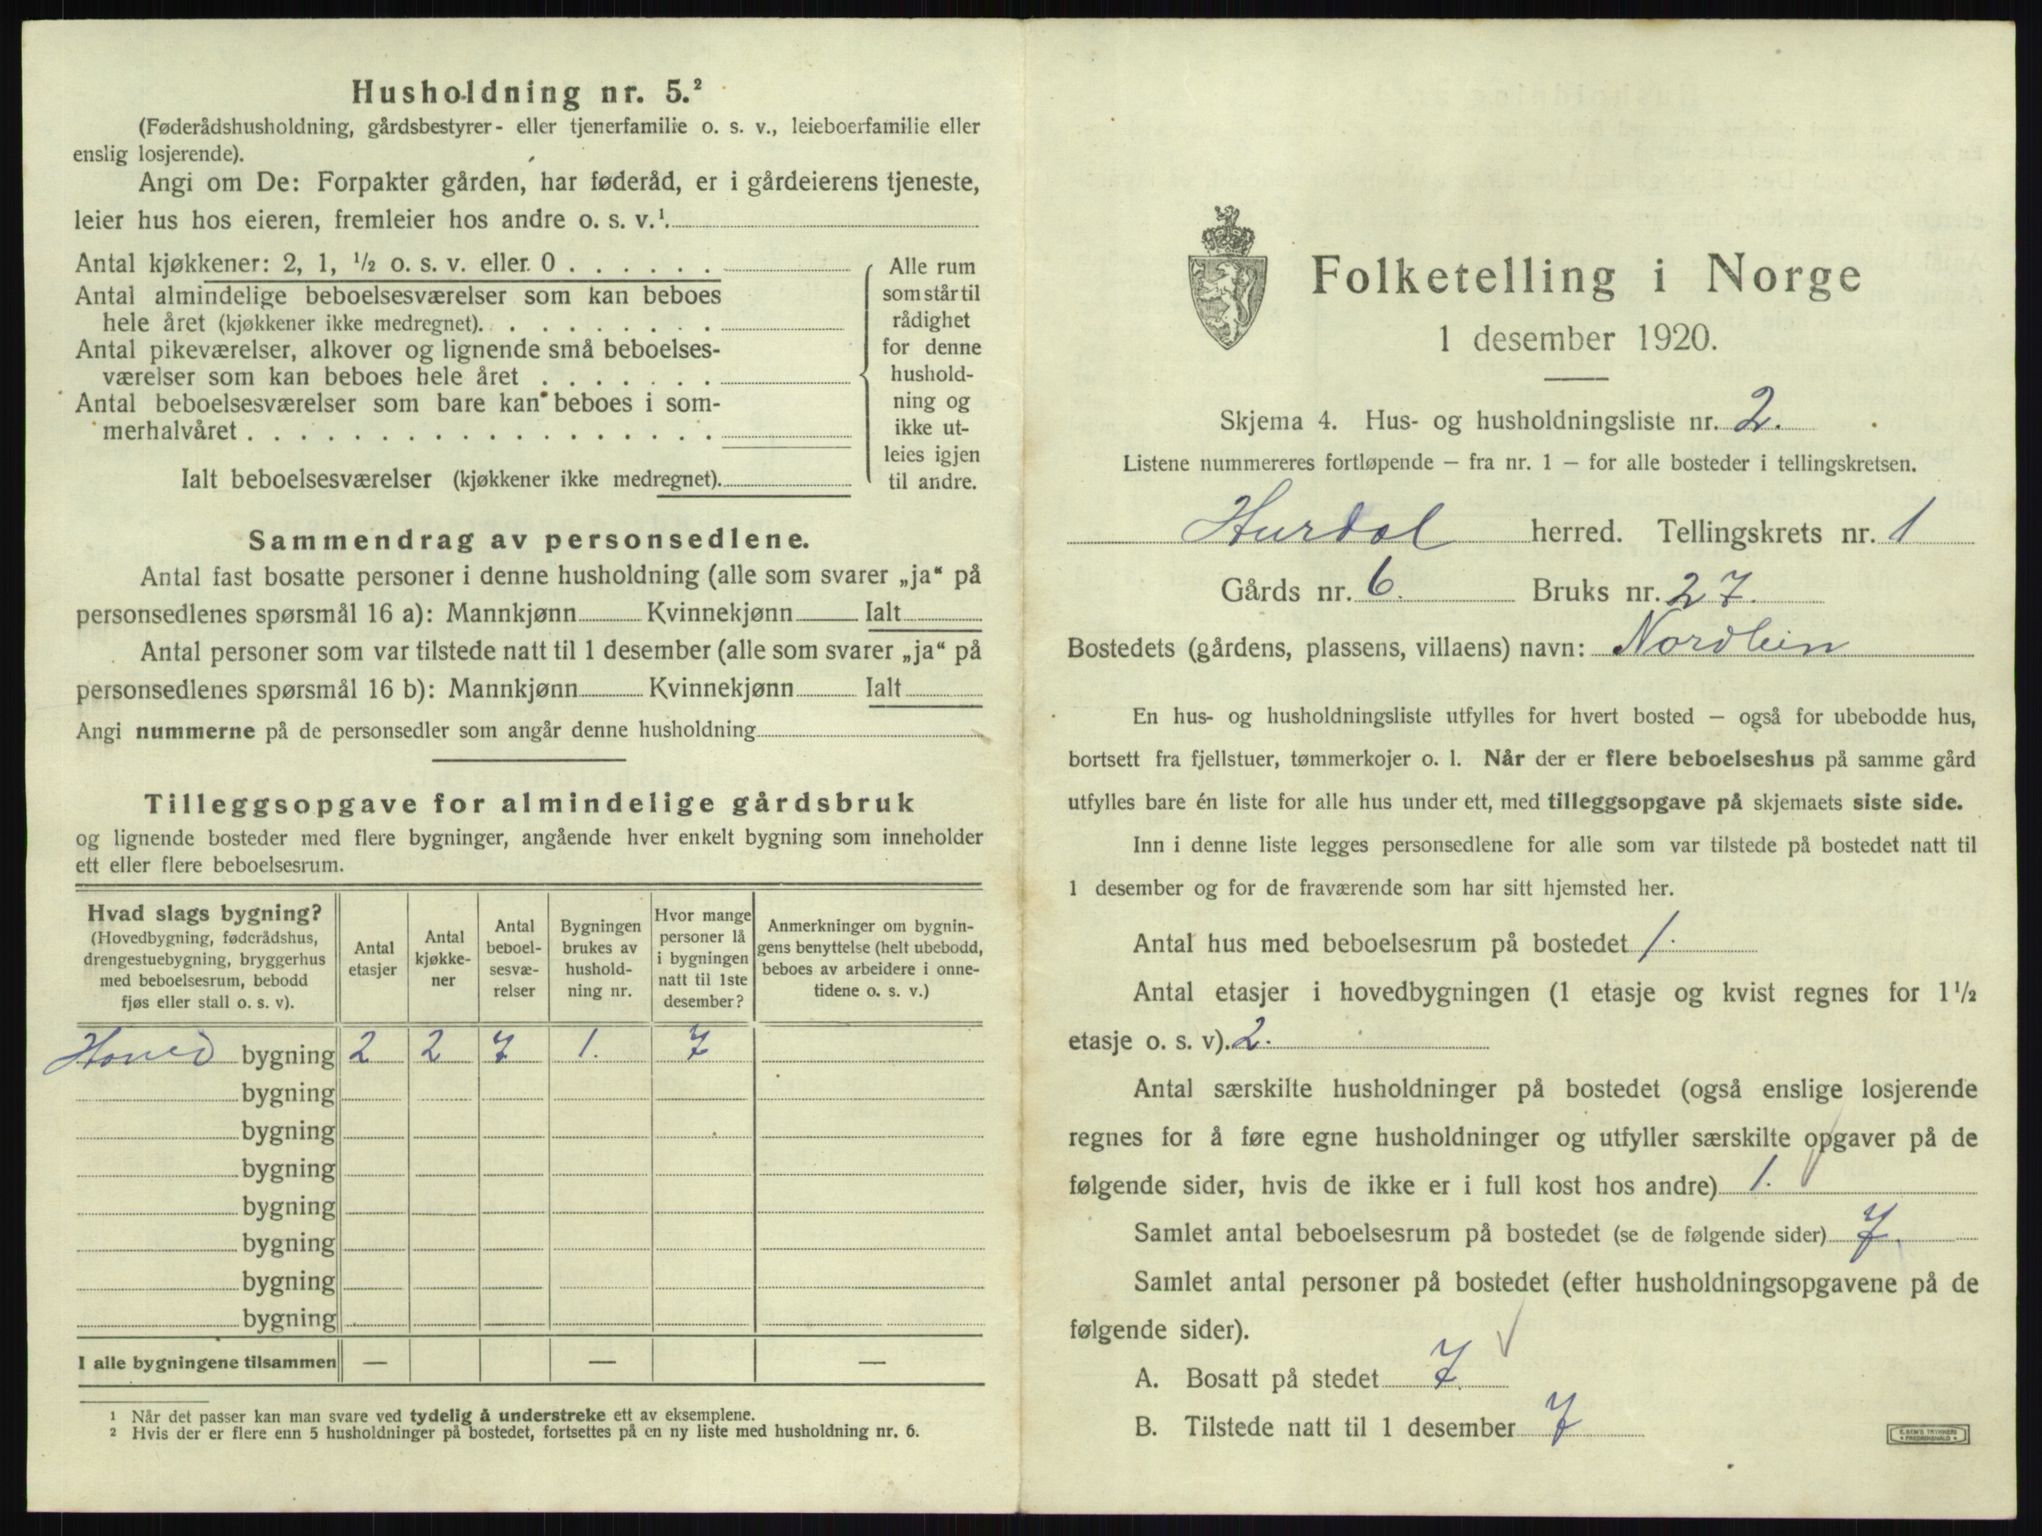 Husholdning nr. 5.²
(Føderådshusholdning, gårdsbestyrer- eller tjenerfamilie o. s. v., leieboerfamilie eller
enslig losjerende).
Angi om De: Forpakter gården, har føderåd, er i gårdeierens tjeneste,
leier hus hos eieren, fremleier hos andre o. s. v.¹.
Antal kjøkkener: 2, 1, ½ o. s. v. eller 0 . . . . . .
Antal almindelige beboelsesværelser som kan beboes
hele året (kjøkkener ikke medregnet). . . . . . . . .
Antal pikeværelser, alkover og lignende små beboelses-
værelser som kan beboes hele året . . . . . . .
Antal beboelsesværelser som bare kan beboes i som-
merhalvåret . . . . . . . . . . . . . . . . . .
Ialt beboelsesværelser (kjøkkener ikke medregnet).
Alle rum
som står til
rådighet
for denne
hushold-
ning og
ikke ut-
leies igjen
til andre.
Sammendrag av personsedlene.
Antal fast bosatte personer i denne husholdning (alle som svarer „ja“ på
personsedlenes spørsmål 16 a): Mannkjønn Kvinnekjønn Ialt
Antal personer som var tilstede natt til 1 desember (alle som svarer „ja“ på
personsedlenes spørsmål 16 b): Mannkjønn Kvinnekjønn Ialt
Angi nummerne på de personsedler som angår denne husholdning
Tilleggsopgave for almindelige gårdsbruk
og lignende bosteder med flere bygninger, angående hver enkelt bygning som inneholder
ett eller flere beboelsesrum.
Hvad slags bygning?
(Hovedbygning, føderådshus,
drengestuebygning, bryggerhus
med beboelsesrum, bebodd
fjøs eller stall o. s. v).
Antal
etasjer
Antal
kjøkke-
ner
Antal
beboel-
sesvæ-
relser
Bygningen
brukes av
hushold-
ning nr.
Hvor mange
personer lå
i bygningen
natt til 1ste
desember?
Anmerkninger om bygnin-
gens benyttelse (helt ubebodd,
beboes av arbeidere i onne-
tidene o. s. v.)
Hoved bygning 2 2 7 1. 7
bygning
bygning
bygning
bygning
bygning
bygning
bygning
I alle bygningene tilsammen — — —
¹ Når det passer kan man svare ved tydelig å understreke ett av eksemplene.
² Hvis der er flere enn 5 husholdninger på bostedet, fortsettes på en ny liste med husholdning nr. 6.
Folketelling i Norge
1 desember 1920.
Skjema 4. Hus- og husholdningsliste nr. 2.
Listene nummereres fortløpende – fra nr. 1 – for alle bosteder i tellingskretsen.
Hurdal herred. Tellingskrets nr. 1
Gårds nr. 6. Bruks nr. 27.
Bostedets (gårdens, plassens, villaens) navn: Nordlein
En hus- og husholdningsliste utfylles for hvert bosted – også for ubebodde hus,
bortsett fra fjellstuer, tømmerkojer o. l. Når der er flere beboelseshus på samme gård
utfylles bare én liste for alle hus under ett, med tilleggsopgave på skjemaets siste side.
Inn i denne liste legges personsedlene for alle som var tilstede på bostedet natt til
1 desember og for de fraværende som har sitt hjemsted her.
Antal hus med beboelsesrum på bostedet 1.
Antal etasjer i hovedbygningen (1 etasje og kvist regnes for 1½
etasje o. s. v). 2.
Antal særskilte husholdninger på bostedet (også enslige losjerende
regnes for å føre egne husholdninger og utfyller særskilte opgaver på de
følgende sider, hvis de ikke er i full kost hos andre) 1.
Samlet antal beboelsesrum på bostedet (se de følgende sider) 7.
Samlet antal personer på bostedet (efter husholdningsopgavene på de
følgende sider).
A. Bosatt på stedet 7.
B. Tilstede natt til 1 desember 7